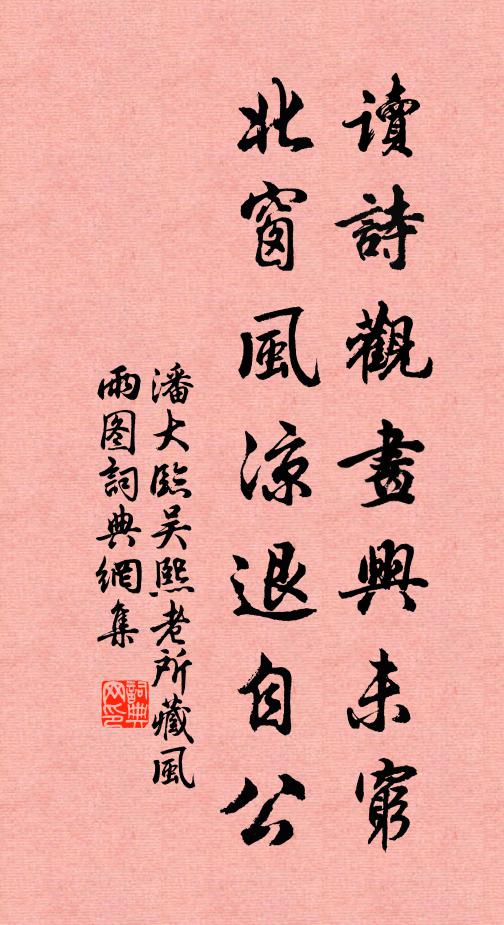 讀詩觀畫興未窮
北窗風涼退自公
潘大臨吳熙老所藏風
雨图詞典網集
詞典网印